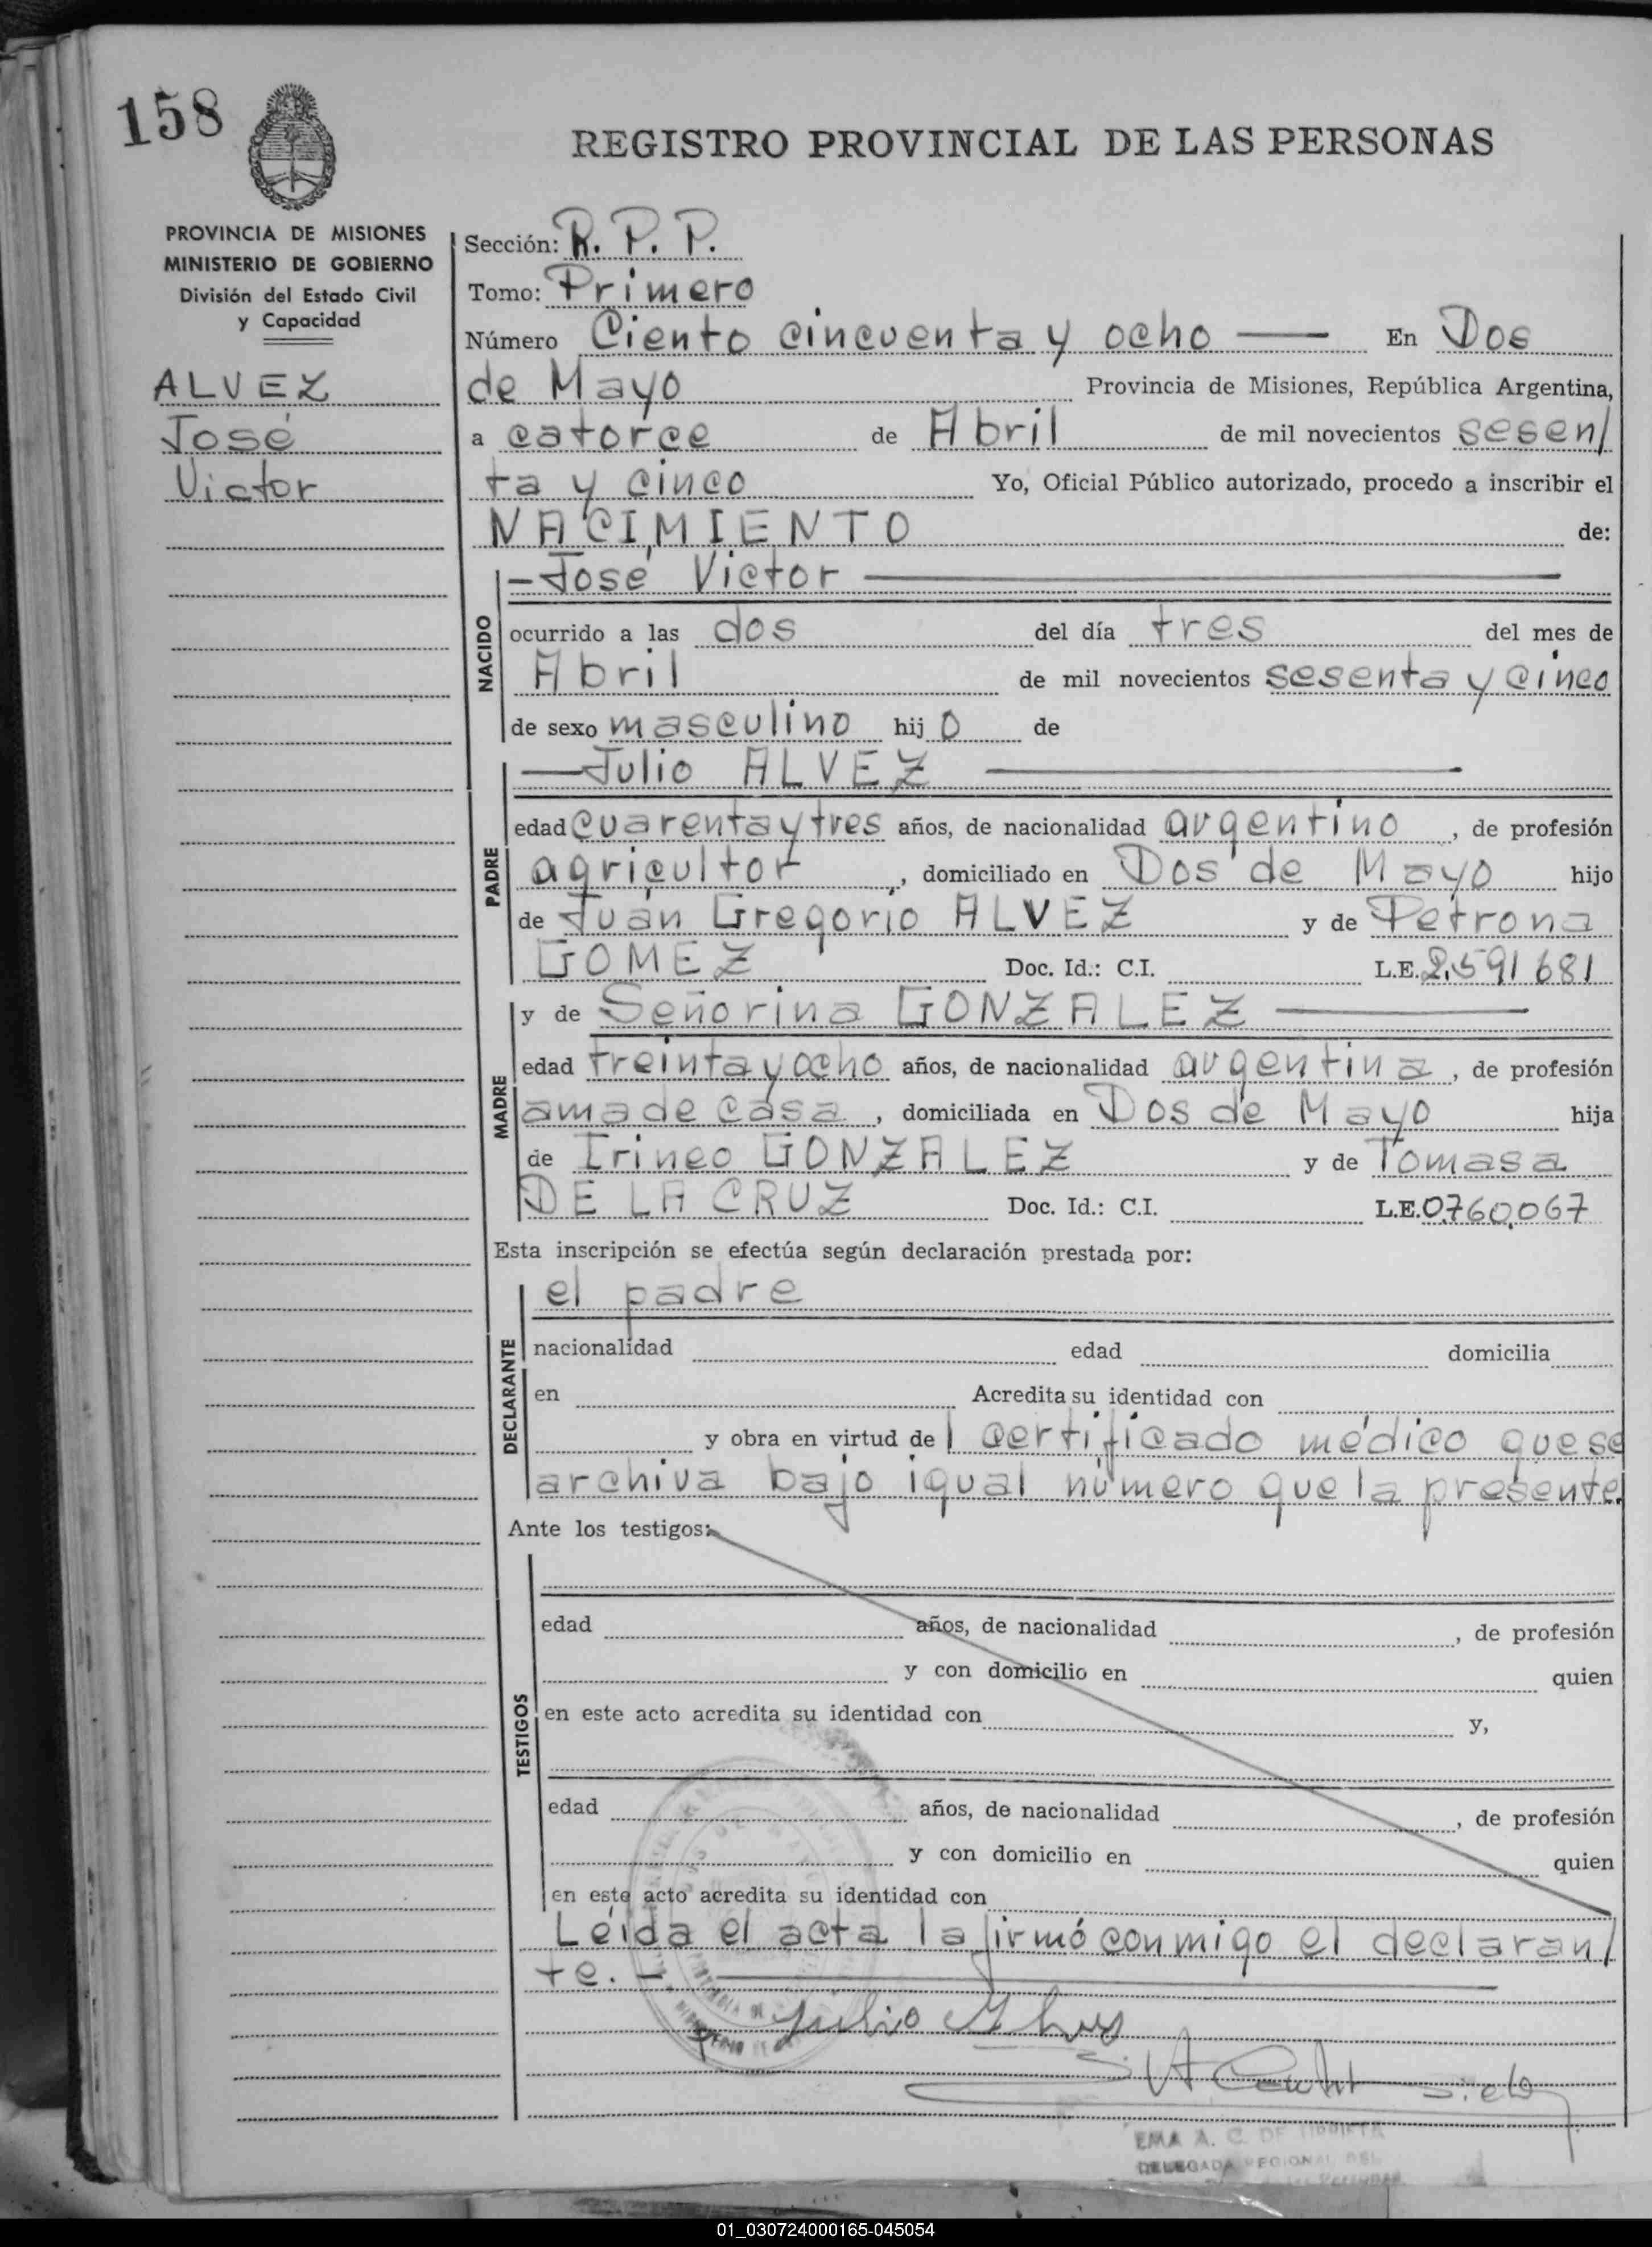 158
REGISTRO PROVINCIAL DE LAS PERSONAS
PROVINCIA DE MISIONES
MINISTERIO DE GOBIERNO
División del Estado Civil
y Capacidad
ALVEZ
José
Victor
Sección: R. P. P.
Tomo: Primero
Número Ciento cincuenta y ocho — En Dos
de Mayo Provincia de Misiones, República Argentina,
a catorce de Abril de mil novecientos sesen/
ta y cinco Yo, Oficial Público autorizado, procedo a inscribir el
NACIMIENTO de:
NACIDO
—José Victor —
ocurrido a las dos del día tres del mes de
Abril de mil novecientos sesenta y cinco
de sexo masculino hijo de
PADRE
—Julio ALVEZ —
edad cuarenta y tres años, de nacionalidad argentino, de profesión
agricultor, domiciliado en Dos de Mayo hijo
de Juan Gregorio ALVEZ y de Petrona
GOMEZ Doc. Id.: C.I. L.E. 2.591681
MADRE
y de Señorina GONZALEZ —
edad treinta y ocho años, de nacionalidad argentina, de profesión
ama de casa, domiciliada en Dos de Mayo hija
de Irineo GONZALEZ y de Tomasa
DE LA CRUZ Doc. Id.: C.I. L.E. 0.760.067
Esta inscripción se efectúa según declaración prestada por:
DECLARANTE
el padre
nacionalidad edad domicilia
en Acredita su identidad con
y obra en virtud del certificado médico que se
archiva bajo igual número que la presente
Ante los testigos:
TESTIGOS
edad años, de nacionalidad , de profesión
y con domicilio en quien
en este acto acredita su identidad con y,
edad años, de nacionalidad , de profesión
y con domicilio en quien
en este acto acredita su identidad con
Leída el acta la firmó conmigo el declaran/
te. —
Julio
EMA A. C. DE
DELEGADA REGIONAL DEL
01_030724000165-045054